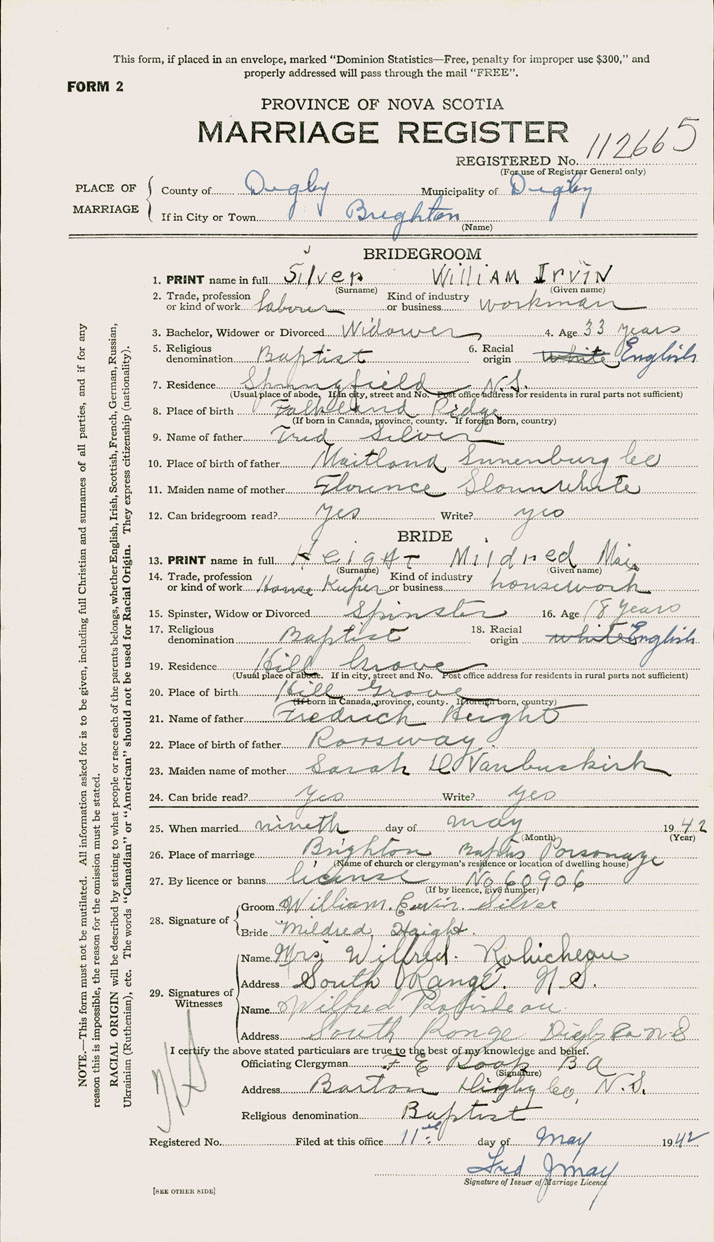 This form, if placed in an envelope, marked "Dominion Statistics—Free, penalty for improper use $300," and
properly addressed will pass through the mail "FREE".
FORM 2
PROVINCE OF NOVA SCOTIA
MARRIAGE REGISTER
REGISTERED No. 112665
(For use of Registrar General only)
PLACE OF MARRIAGE
County of Digby Municipality of Digby
If in City or Town Brighton
(Name)
BRIDEGROOM
1. PRINT name in full Silver William Irvin
(Surname) (Given name)
2. Trade, profession or kind of work laborer Kind of industry or business workman
3. Bachelor, Widower or Divorced Widower 4. Age 33 years
5. Religious denomination Baptist 6. Racial origin white English
7. Residence Springfield N.S.
(Usual place of abode. If in city, street and No. Post office address for residents in rural parts not sufficient)
8. Place of birth Falkland Ridge
(If born in Canada, province, county. If foreign born, country)
9. Name of father Fred Silver
10. Place of birth of father Maitland Lunenburg Co
11. Maiden name of mother Florence Slaunwhite
12. Can bridegroom read? Yes Write? yes
BRIDE
13. PRINT name in full Height Mildred Mai
(Surname) (Given name)
14. Trade, profession or kind of work House Kuper Kind of industry or business housework
15. Spinster, Widow or Divorced Spinster 16. Age 18 years
17. Religious denomination Baptist 18. Racial origin white English
19. Residence Hill Grove
(Usual place of abode. If in city, street and No. Post office address for residents in rural parts not sufficient)
20. Place of birth Hill Grove
(If born in Canada, province, county. If foreign born, country)
21. Name of father Fredrich Height
22. Place of birth of father Rossway
23. Maiden name of mother Sarah Vanbuskirk
24. Can bride read? Yes Write? yes
25. When married nineth day of may 1942
(Month) (Year)
26. Place of marriage Brighton Baptis Parsonage
(Name of church or clergyman's residence or location of dwelling house)
27. By licence or banns license No 60906
(If by licence, give number)
28. Signature of
Groom William Ervin Silver
Bride Mildred Haight.
29. Signatures of Witnesses
Name Mrs Wilfred. Robicheau
Address South Range. N.S.
Name Wilfred Robicheau
Address South Range Digby Co N S
I certify the above stated particulars are true to the best of my knowledge and belief.
Officiating Clergyman F E B A
(Signature)
Address Barton Digby Co, N.S.
Religious denomination Baptist
Registered No. Filed at this office 11th day of May 1942
Fred J May
Signature of Issuer of Marriage Licence
[SEE OTHER SIDE]
NOTE.—This form must not be mutilated. All information asked for is to be given, including full Christian and surnames of all parties, and if for any
reason this is impossible, the reason for the omission must be stated.
RACIAL ORIGIN will be described by stating to what people or race each of the parents belongs, whether English, Irish, Scottish, French, German, Russian,
Ukrainian (Ruthenian), etc. The words "Canadian" or "American" should not be used for Racial Origin. They express citizenship (nationality).